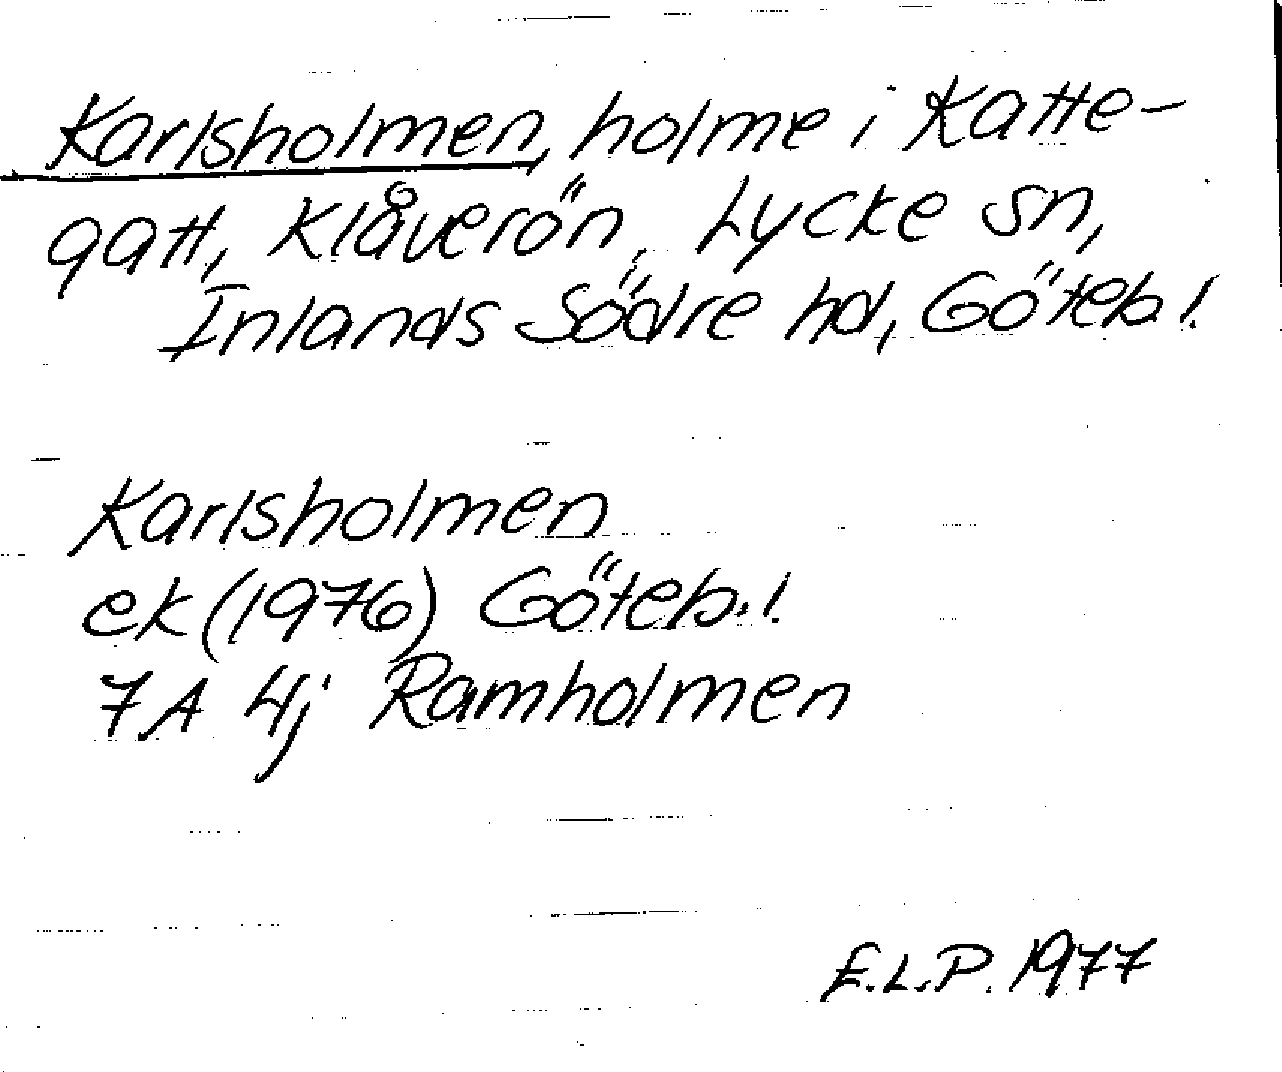 Karlsholmen, holme i Katte-
gatt, Klåverön, Lycke sn,
Inlands Södre hd, Göteb. l.
Karlsholmen
ek (1976) Göteb. l.
7A 4j Ramholmen
E.L.P. 1977